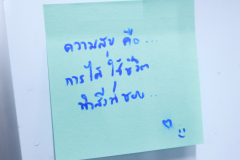 ความสุข คือ...
การได้ ใช้ชีวิต
ทำสิ่งที่ชอบ...